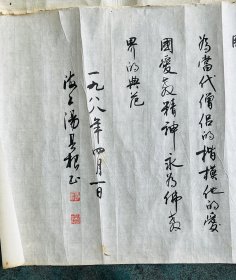 為當代僧侶的楷模他的愛
國愛教精神永為佛教
界的典范
一九八八年四月一日
海上湯